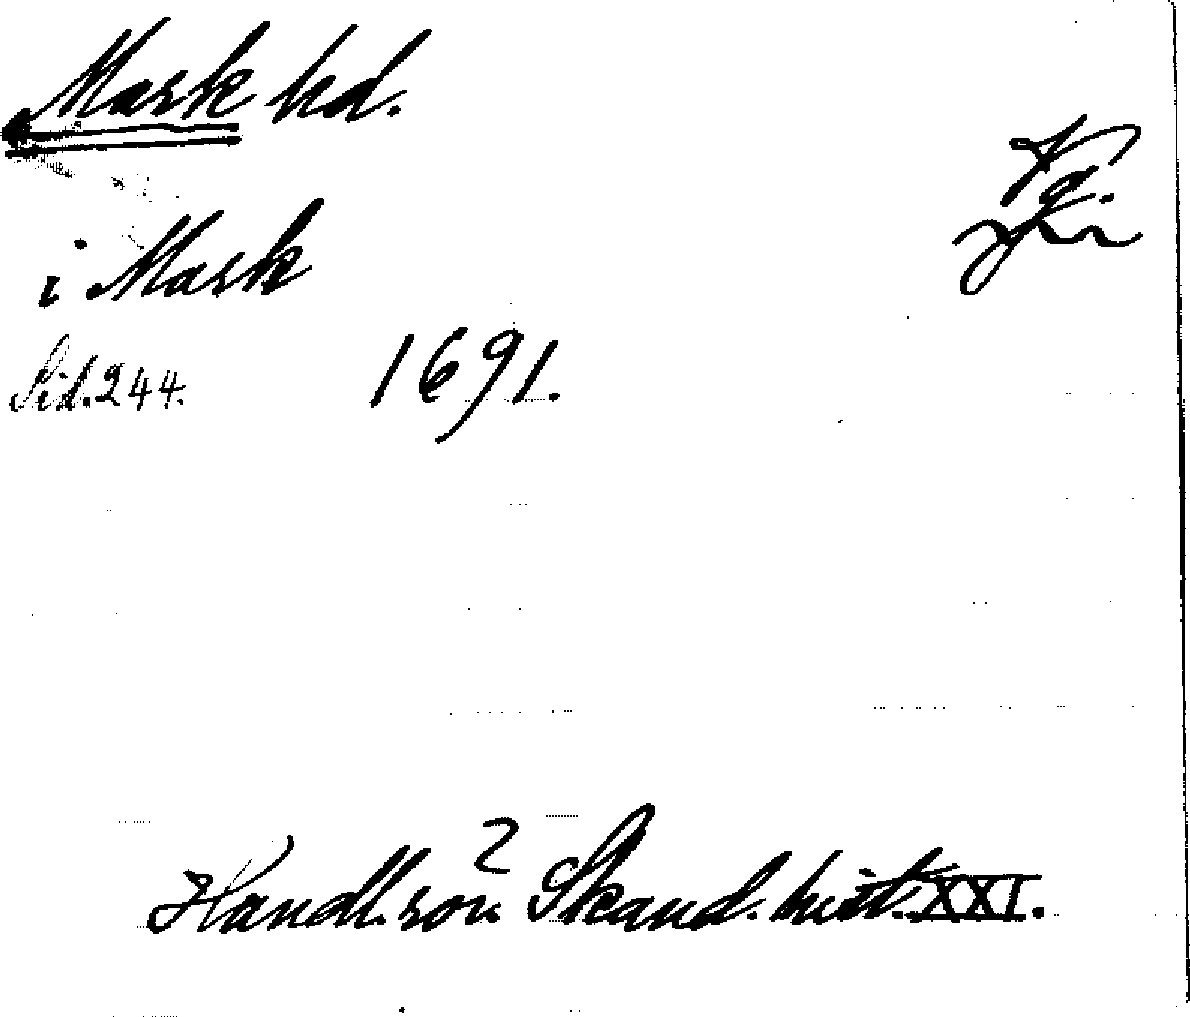 Mark hd.
Vg.
i Mark
Sid. 244.
1691.
Handl. rör. Skand. hist. XXI.